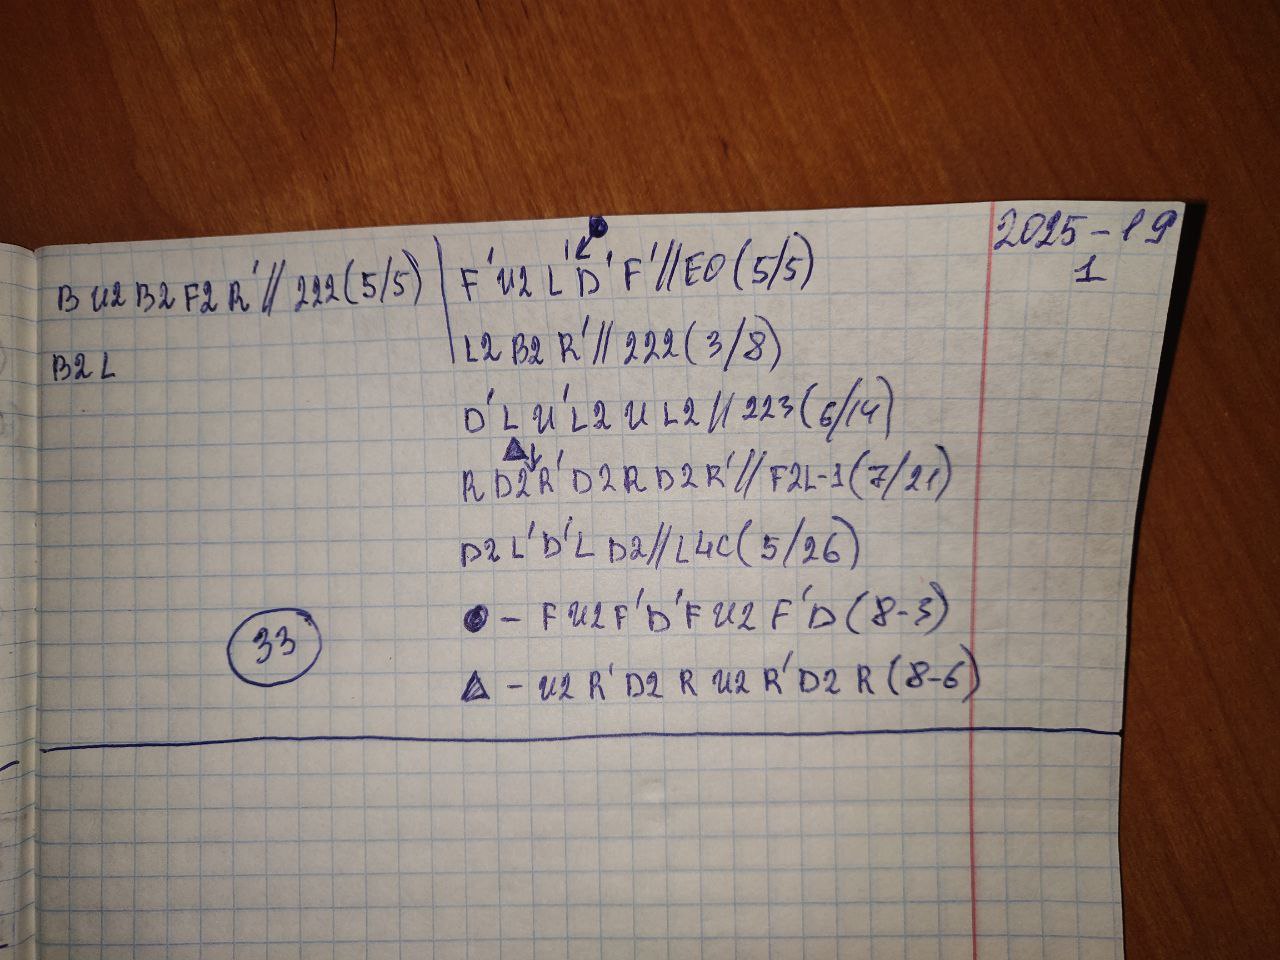 2025-19
1
B U2 B2 F2 R' // 222 (5/5)
B2 L
F' U2 L' D' F' // EO (5/5)
L2 B2 R' // 222 (3/8)
D' L U' L2 U L2 // 223 (6/14)
R D2 R' D2 R D2 R' // F2L-1 (7/21)
D2 L' D' L D2 // L4C (5/26)
● - F U2 F' D' F U2 F' D (8-3)
▲ - U2 R' D2 R U2 R' D2 R (8-6)
33